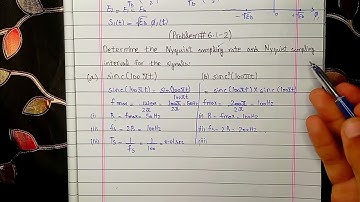 S₁(t) = √Eb φ₁(t)
-√Eb 0 +√Eb
(Problem # 6.1-2)
Determine the Nyquist sampling rate and Nyquist sampling
intervals for the signals:
(a) sinc(100πt) (b) sinc²(100πt)
sinc(100πt) = sin(100πt)/100πt = sinc(100πt) x sinc(100πt)
fmax = ωmax/2π = 100π/2π = 50Hz fmax = 200π/2π = 100Hz
(i) B = fmax = 50Hz (i) B = fmax = 100Hz
(ii) fs = 2B = 100Hz (ii) fs = 2B = 200Hz
(iii) Ts = 1/fs = 1/100 = 0.01sec (iii)